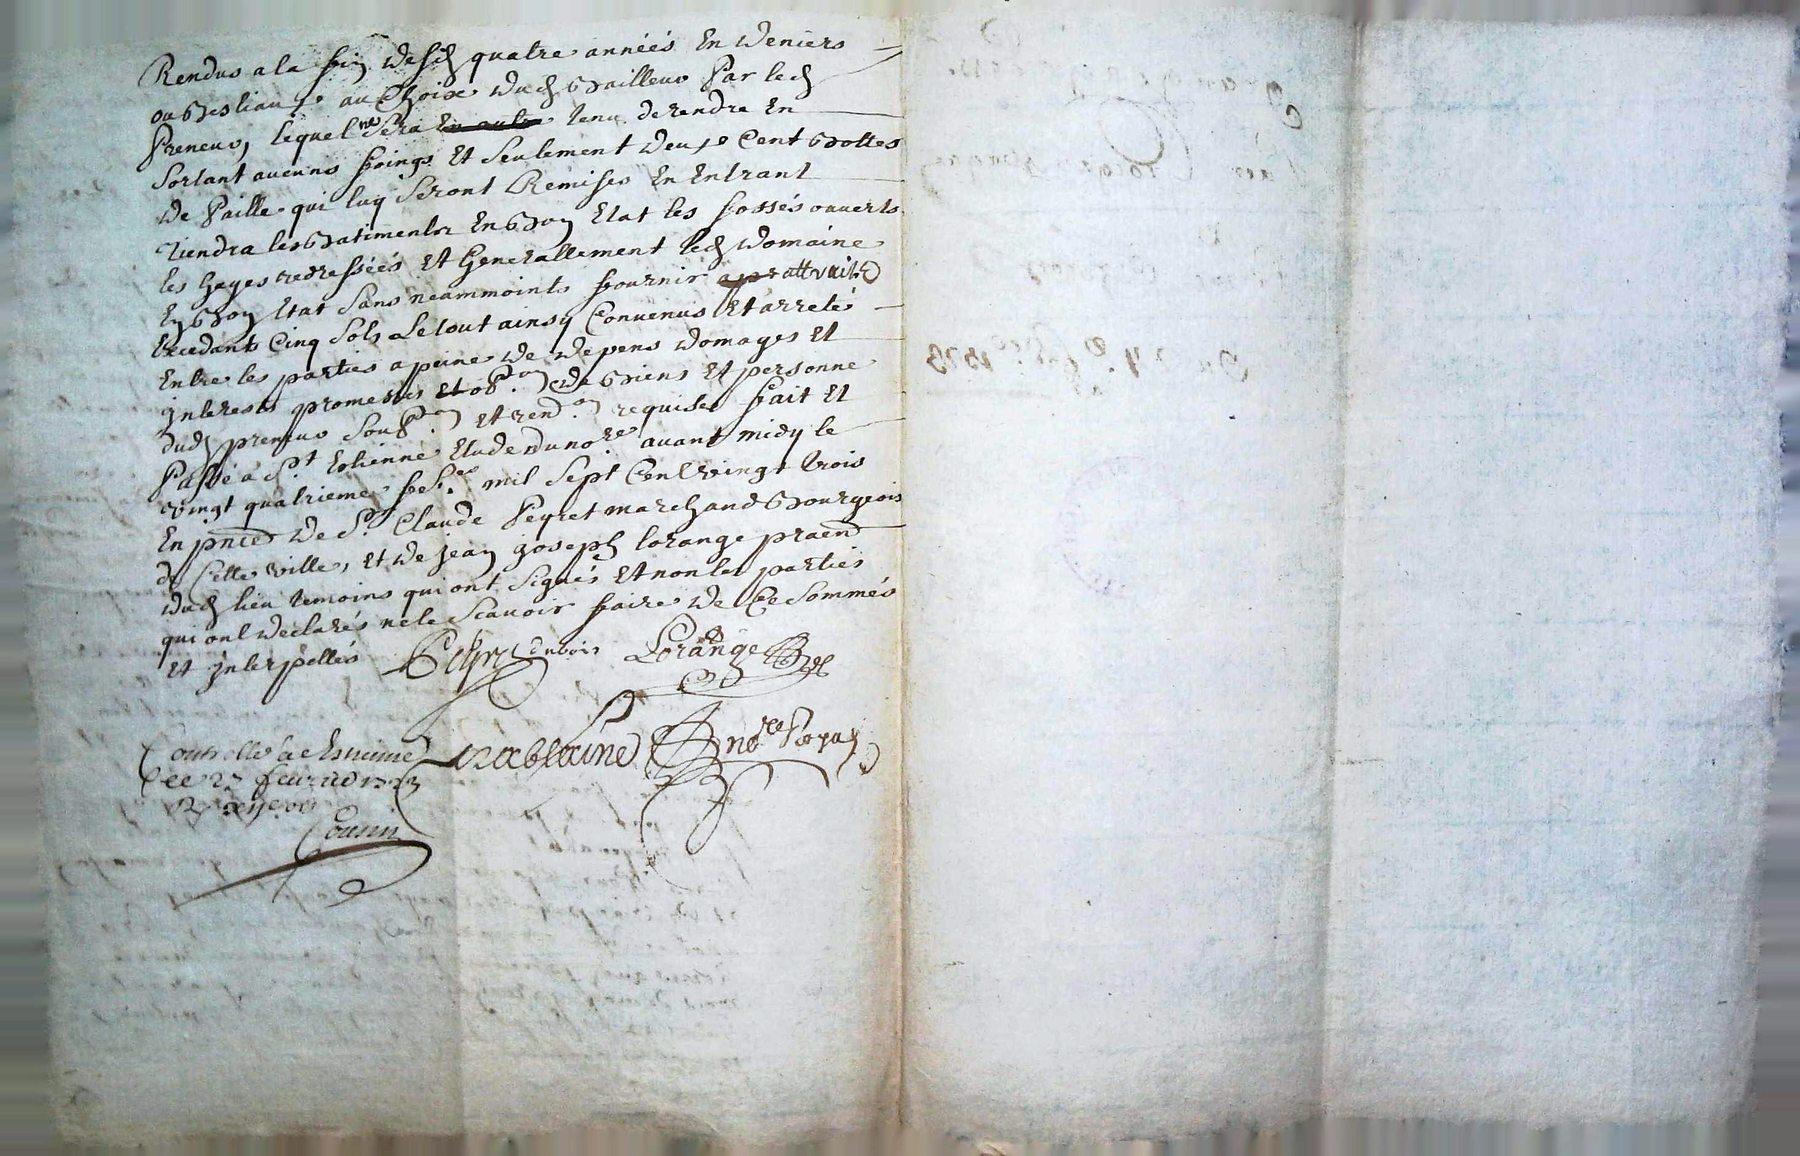 Rendus a la fin desd quatre années En deniers
ou Bestiaux au Choix dud Bailleur Par led
Preneur, lequel ne sera En outre tenu de rendre En
Sortant aucuns foings Et Seulement deux Cent Bottes
de Paille qui luy Seront Remises En Entrant
Tiendra les Batiments En Bon Etat les fossés ouverts
les hayes redressées Et Generallement led domaine
En Bon Etat Sans neammoints fournir attraits
Excedants Cinq Sols Le tout ainsy Convenus Et arretés
Entre les parties a peine de depens domages Et
Interests promesses et obon de Biens Et personne
dud preneur Soubon Et renon requises fait Et
Passé a St Estienne Etude du nore avant midy le
vingt quatrieme mil Sept Cent vingt trois
En pnce de Sr Claude Peyret marchand Bourgeois
de Cette ville, Et de jean joseph lorange praen
dud lieu temoins qui ont Signés Et non les parties
qui ont declarés ne le Scavoir faire de Ce Sommés
Et Interpellés Peyret dubois Lorange
Controllé a St Estienne
Le 27 feuvrier 1723
Cousin
nore Royal